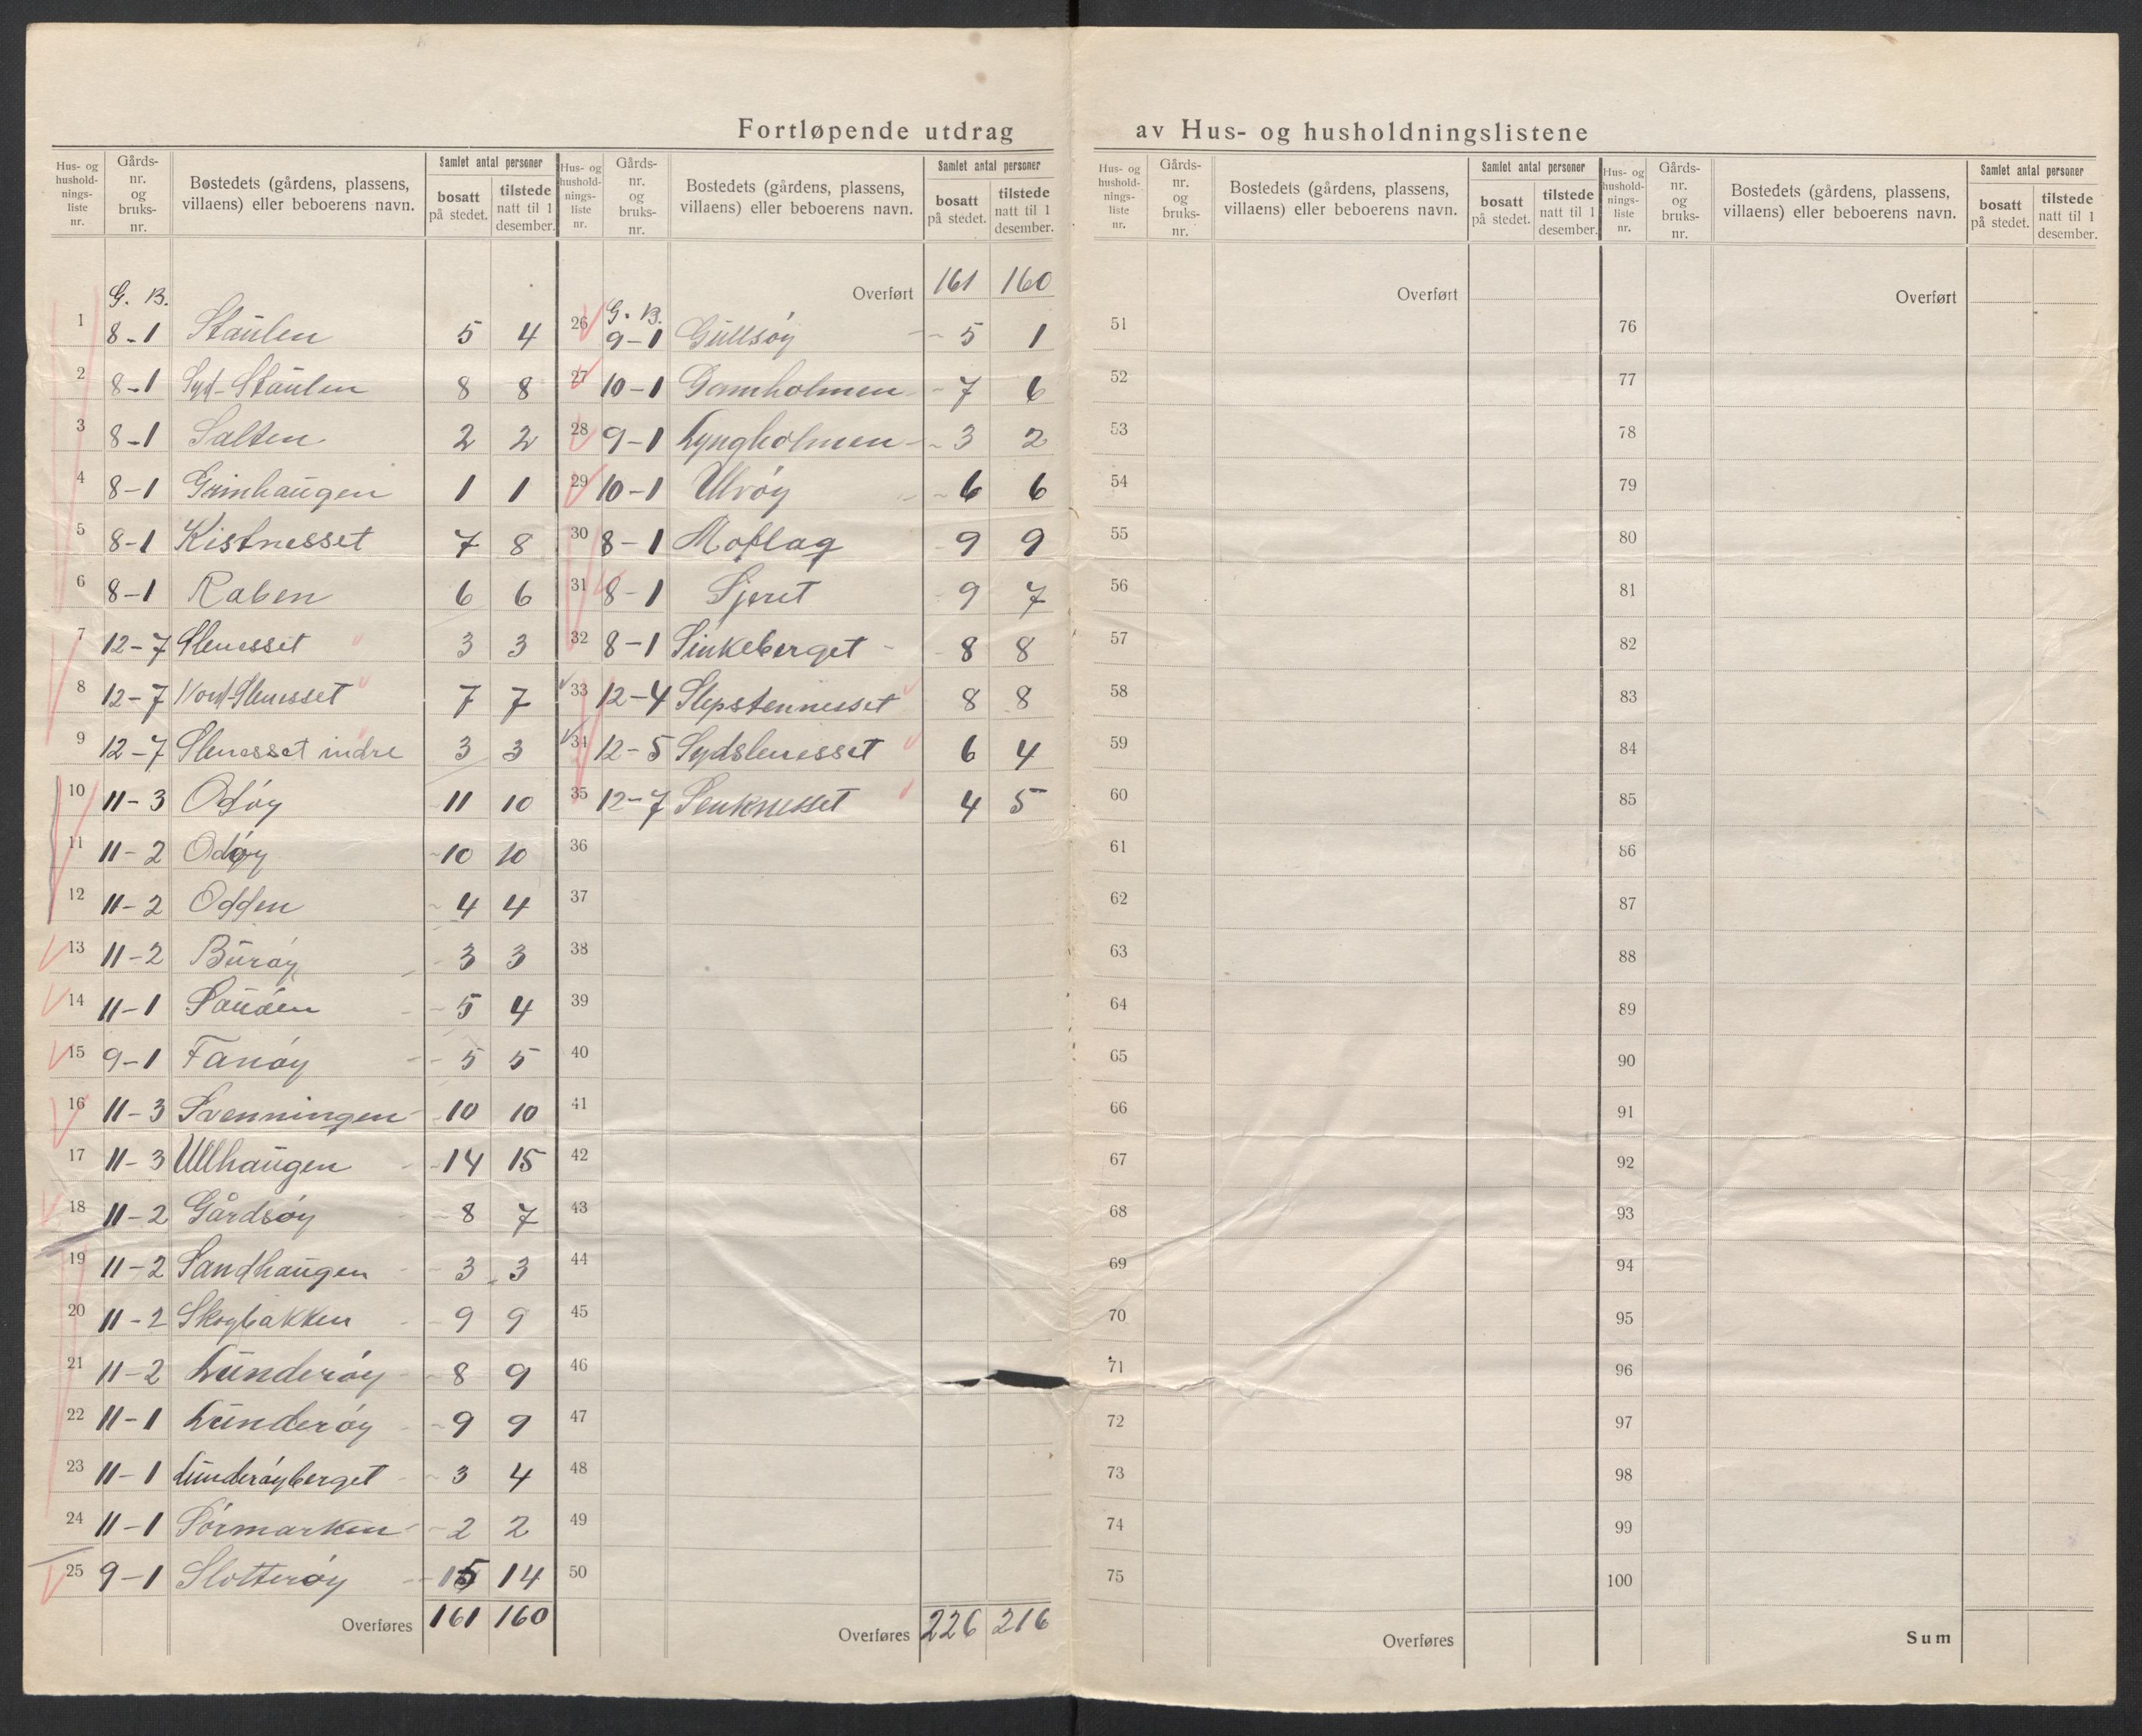 Fortløpende utdrag av Hus- og husholdningslistene
Hus- og hushold- nings- liste nr. | Gårds- nr. og bruks- nr. | Bostedets (gårdens, plassens, villaens) eller beboerens navn. | Samlet antal personer | bosatt på stedet. | tilstede natt til 1 desember.
G. B.
1 8-1 Staulen 5 4
2 8-1 Syd-Staulen 8 8
3 8-1 Salten 2 2
4 8-1 Grinhaugen 1 1
5 8-1 Kistnesset 7 8
6 8-1 Raben 6 6
7 12-7 Slenesset 3 3
8 12-7 Nord-Slenesset 7 7
9 12-7 Slenesset indre 3 3
10 11-3 Odøy 11 10
11 11-2 Odøy 10 10
12 11-2 Odden 4 4
13 11-2 Burøy 3 3
14 11-1 5 4
15 9-1 Fanøy 5 5
16 11-3 Svenningen 10 10
17 11-3 Ullhaugen 14 15
18 11-2 Gårdsøy 8 7
19 11-2 Sandhaugen 3 3
20 11-2 Skogbakken 9 9
21 11-2 Lunderøy 8 9
22 11-1 Lunderøy 9 9
23 11-1 Lunderøyberget 3 4
24 11-1 Sørmarken 2 2
25 9-1 Slotterøy 15 14
Overføres 161 160
Hus- og hushold- nings- liste nr. | Gårds- nr. og bruks- nr. | Bostedets (gårdens, plassens, villaens) eller beboerens navn. | Samlet antal personer | bosatt på stedet. | tilstede natt til 1 desember.
Overført 161 160
G. B.
26 9-1 Gullsøy 5 1
27 10-1 Gamholmen 7 6
28 9-1 Lyngholmen 3 2
29 10-1 Ulvøy 6 6
30 8-1 Moflag 9 9
31 8-1 9 7
32 8-1 Sinkeberget 8 8
33 12-4 Slepstennesset 8 8
34 12-5 Sydslenesset 6 4
35 12-7 Senknesset 4 5
36
37
38
39
40
41
42
43
44
45
46
47
48
49
50
Overføres 226 216
Hus- og hushold- nings- liste nr. | Gårds- nr. og bruks- nr. | Bostedets (gårdens, plassens, villaens) eller beboerens navn. | Samlet antal personer | bosatt på stedet. | tilstede natt til 1 desember.
Overført
51
52
53
54
55
56
57
58
59
60
61
62
63
64
65
66
67
68
69
70
71
72
73
74
75
Overføres
Hus- og hushold- nings- liste nr. | Gårds- nr. og bruks- nr. | Bostedets (gårdens, plassens, villaens) eller beboerens navn. | Samlet antal personer | bosatt på stedet. | tilstede natt til 1 desember.
Overført
76
77
78
79
80
81
82
83
84
85
86
87
88
89
90
91
92
93
94
95
96
97
98
99
100
Sum